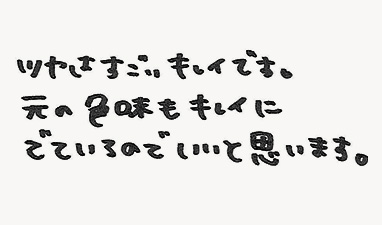 ツヤはすごいキレイです。
元の色味もキレイに
でているのでいいと思います。